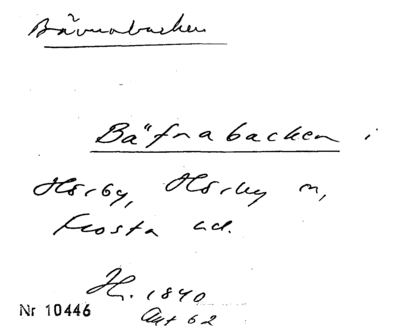 Bävnabacken
Bäfnabacken i
Hörby, Hörby sn,
Frosta hd.
H. 1840
Nr 10446
Ant 62